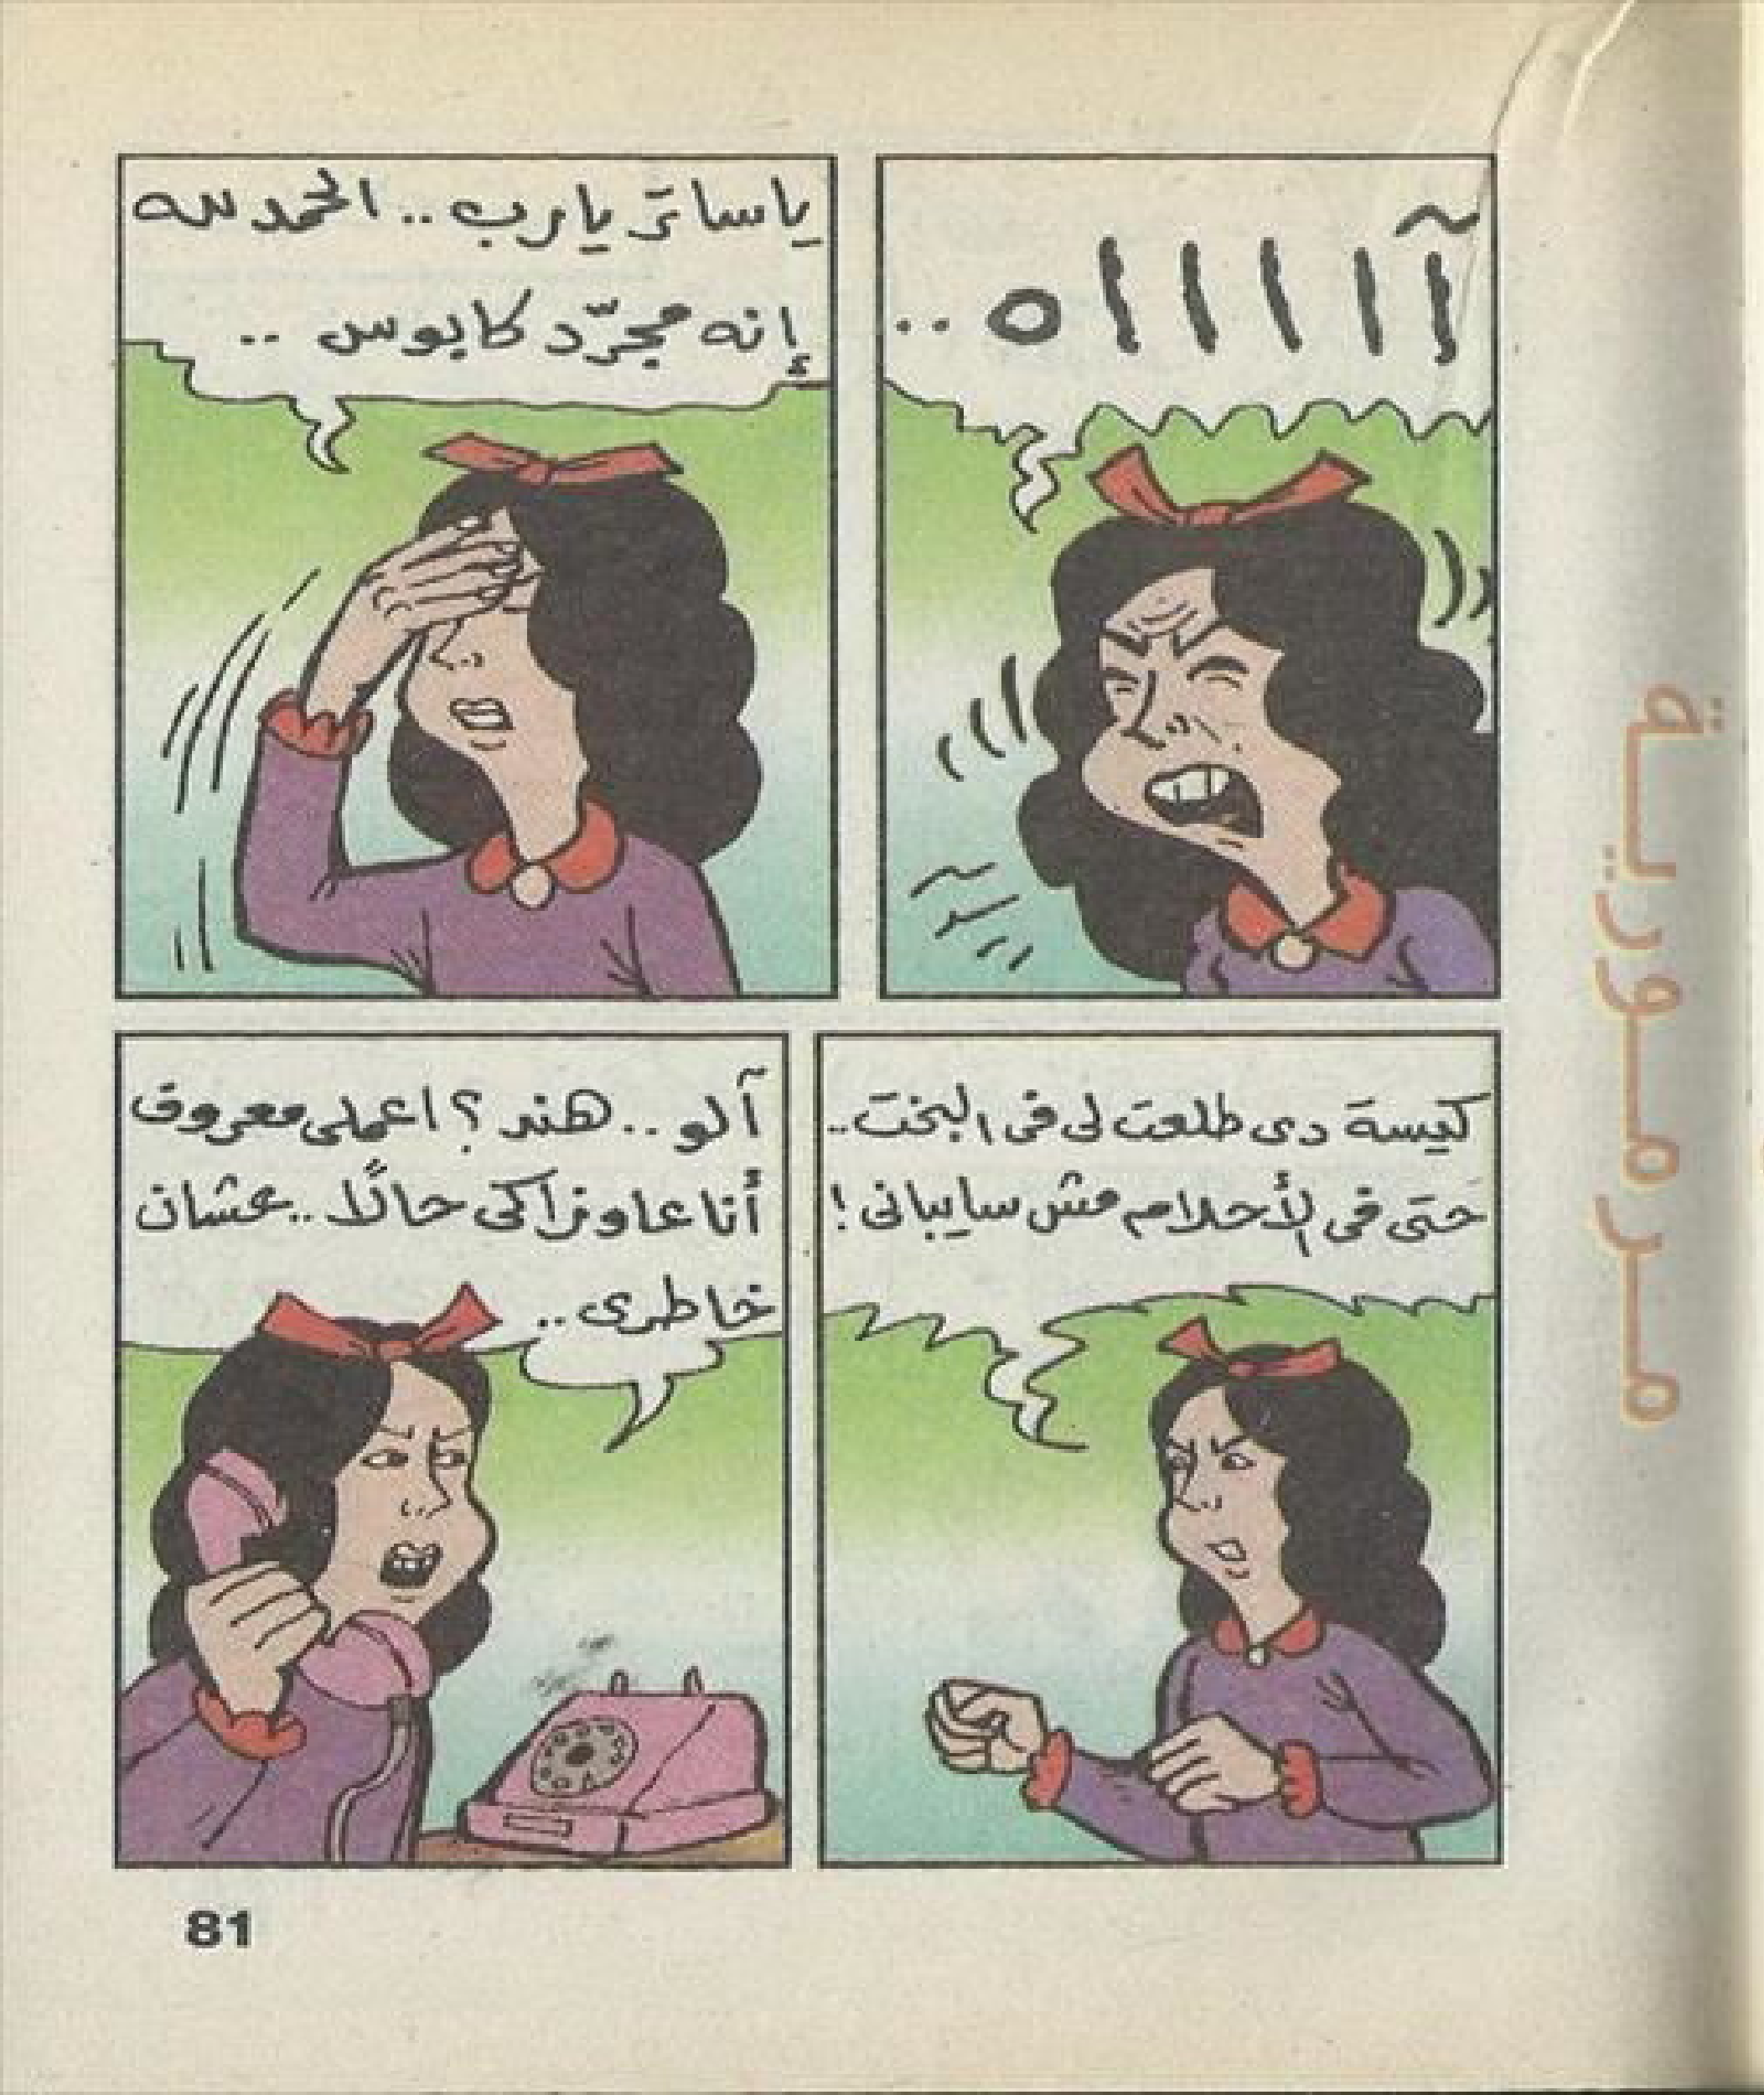 آاااااه ..
ياساتر يارب .. الحمد لله
إنه مجرّد كابوس ..
كبسة دى طلعت لى فى البخت ..
حتى فى الأحلام مش سايبانى !
آلو .. هند ؟ اعملى معروف
أنا عاوزاكى حالاً .. عشان
خاطرى ..
81
مرمورية